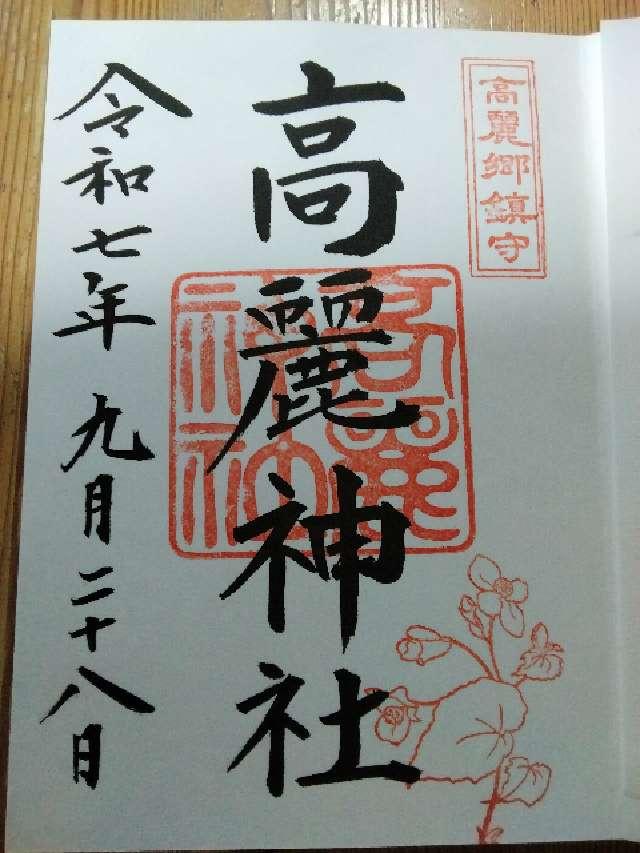 高麗郷鎮守
高麗神社
高麗神社
令和七年九月二十八日